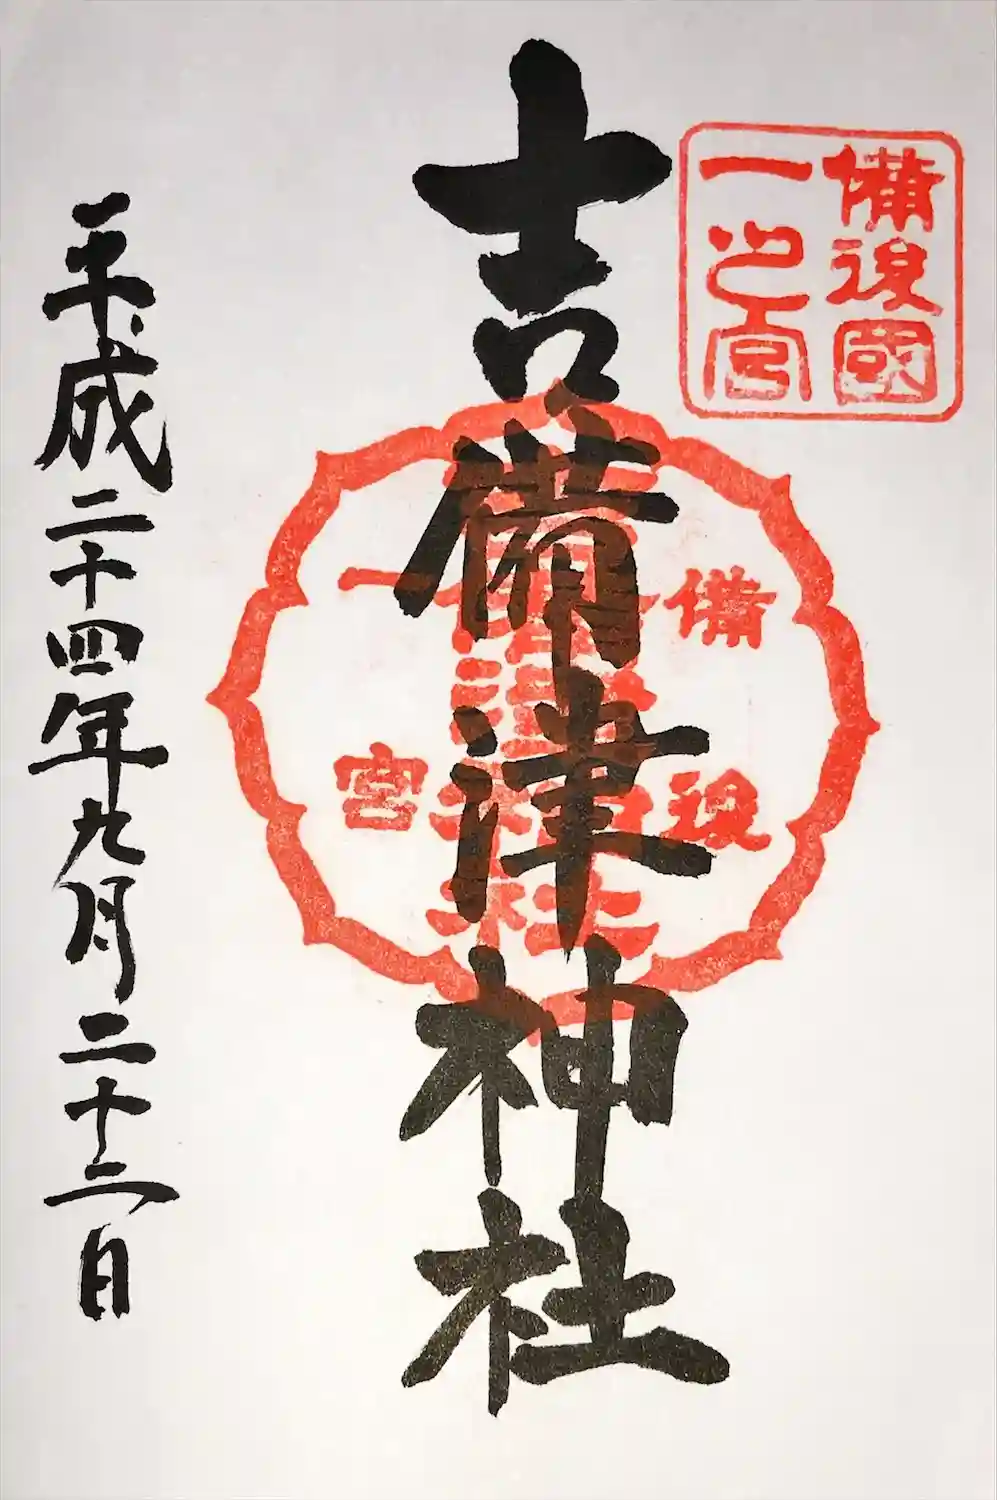 備後國
一之宮
吉備津神社
備後
吉備津神社
一宮
平成二十四年九月二十三日